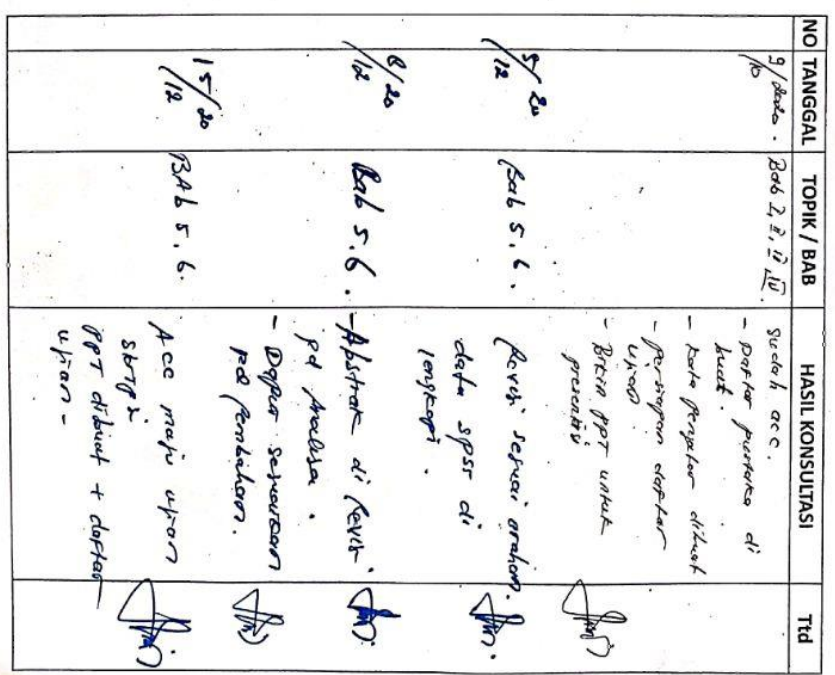 NO TANGGAL TOPIK / BAB HASIL KONSULTASI Ttd
9/10 2020. Bab I, II, III, IV. sudah acc.
- Daftar pustaka di
buat.
- Kata pengantar dibuat
- persiapan daftar
ujian
- Bikin PPT untuk
presentasi
5/12 20 Bab 5.6. Revisi sesuai arahan.
data spss di
lengkapi.
8/12 20 Bab 5.6. - Abstrak di Revisi
pd Analisa.
- Dapus sesuaikan
pd pembahasan.
15/12 20 BAb 5.6. Acc maju ujian
skripsi
PPT dibuat + daftar
ujian -